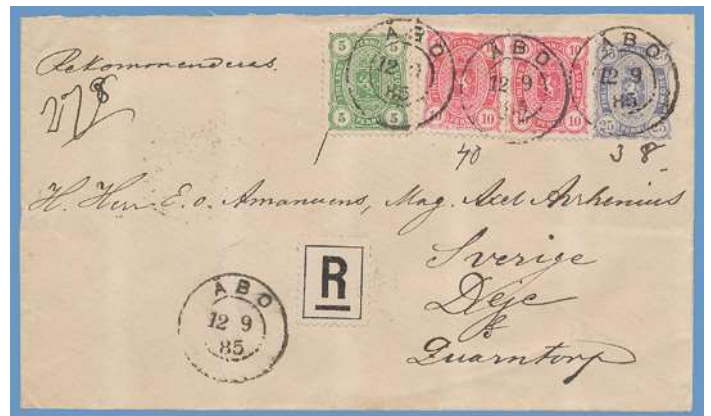 Rekommenderas.
278
5 5 10 10 25 25
5 5 10 10
PENNI
ÅBO
12 9
85
ÅBO
12 9
85
ÅBO
12 9
85
40
38
H. Herr E. o. Amanuens, Mag. Axel Arrhenius
R
Sverige
Deje
Quarntorp
ÅBO
12 9
85